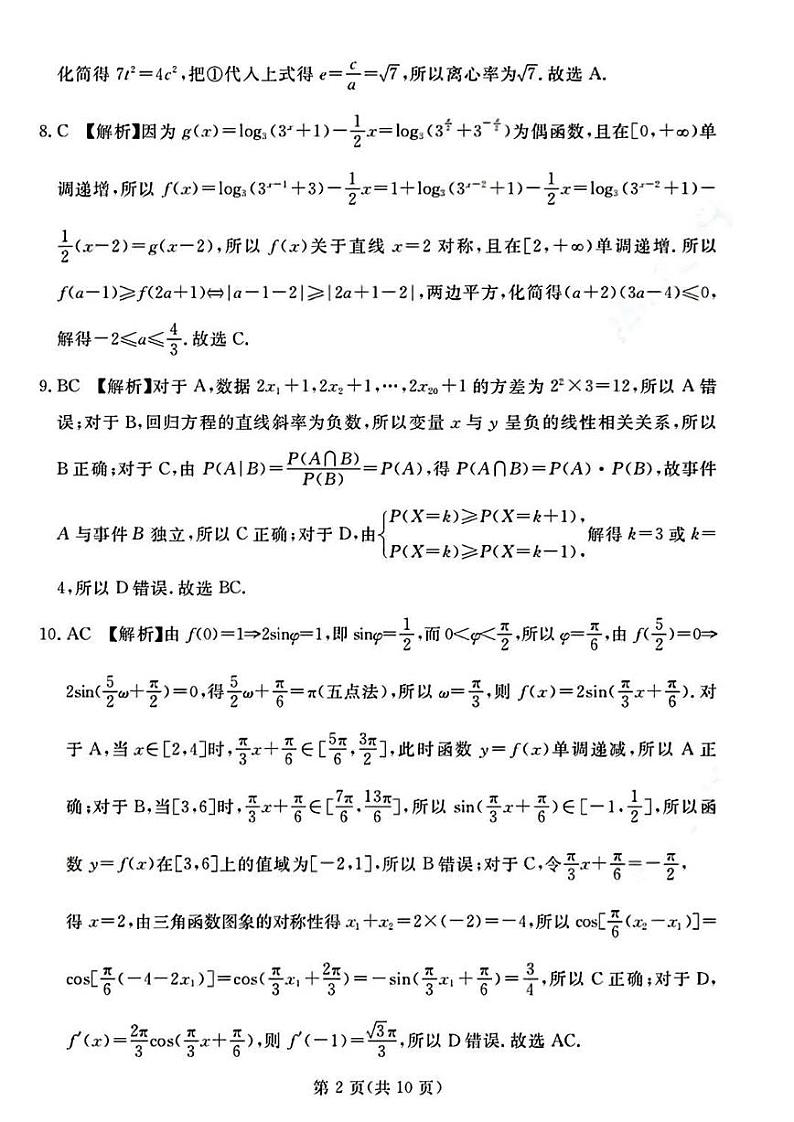 化简得 7t²=4c²,把①代人上式得 e=c/a=√7,所以离心率为√7.故选 A.
8. C 【解析】因为 g(x)=log₃(3ˣ+1)-1/2x=log₃(3^(x/2)+3^(-x/2))为偶函数,且在[0,+∞)单
调递增,所以 f(x)=log₃(3ˣ⁻¹+3)-1/2x=1+log₃(3ˣ⁻²+1)-1/2x=log₃(3ˣ⁻²+1)-
1/2(x-2)=g(x-2),所以 f(x)关于直线 x=2 对称,且在[2,+∞)单调递增.所以
f(a-1)≥f(2a+1)⇔|a-1-2|≥|2a+1-2|,两边平方,化简得(a+2)(3a-4)≤0,
解得-2≤a≤4/3.故选 C.
9. BC 【解析】对于 A,数据 2x₁+1,2x₂+1,…,2x₂₀+1 的方差为 2²×3=12,所以 A 错
误;对于 B,回归方程的直线斜率为负数,所以变量 x 与 y 呈负的线性相关关系,所以
B 正确;对于 C,由 P(A|B)=P(A∩B)/P(B)=P(A),得 P(A∩B)=P(A)·P(B),故事件
A 与事件 B 独立,所以 C 正确;对于 D,由{P(X=k)≥P(X=k+1), P(X=k)≥P(X=k-1). 解得 k=3 或 k=
4,所以 D 错误.故选 BC.
10. AC 【解析】由 f(0)=1⇒2sinφ=1,即 sinφ=1/2,而 0<φ<π/2,所以 φ=π/6,由 f(5/2)=0⇒
2sin(5/2ω+π/2)=0,得5/2ω+π/6=π(五点法),所以 ω=π/3,则 f(x)=2sin(π/3x+π/6).对
于 A,当 x∈[2,4]时,π/3x+π/6∈[5π/6,3π/2],此时函数 y=f(x)单调递减,所以 A 正
确;对于 B,当[3,6]时,π/3x+π/6∈[7π/6,13π/6],所以 sin(π/3x+π/6)∈[-1,1/2],所以函
数 y=f(x)在[3,6]上的值域为[-2,1],所以 B 错误;对于 C,令π/3x+π/6=-π/2,
得 x=2,由三角函数图象的对称性得 x₁+x₂=2×(-2)=-4,所以 cos[π/6(x₂-x₁)]=
cos[π/6(-4-2x₁)]=cos(π/3x₁+2π/3)=-sin(π/3x₁+π/6)=3/4,所以 C 正确;对于 D,
f′(x)=2π/3cos(π/3x+π/6),则 f′(-1)=√3π/3,所以 D 错误.故选 AC.
第 2 页(共 10 页)